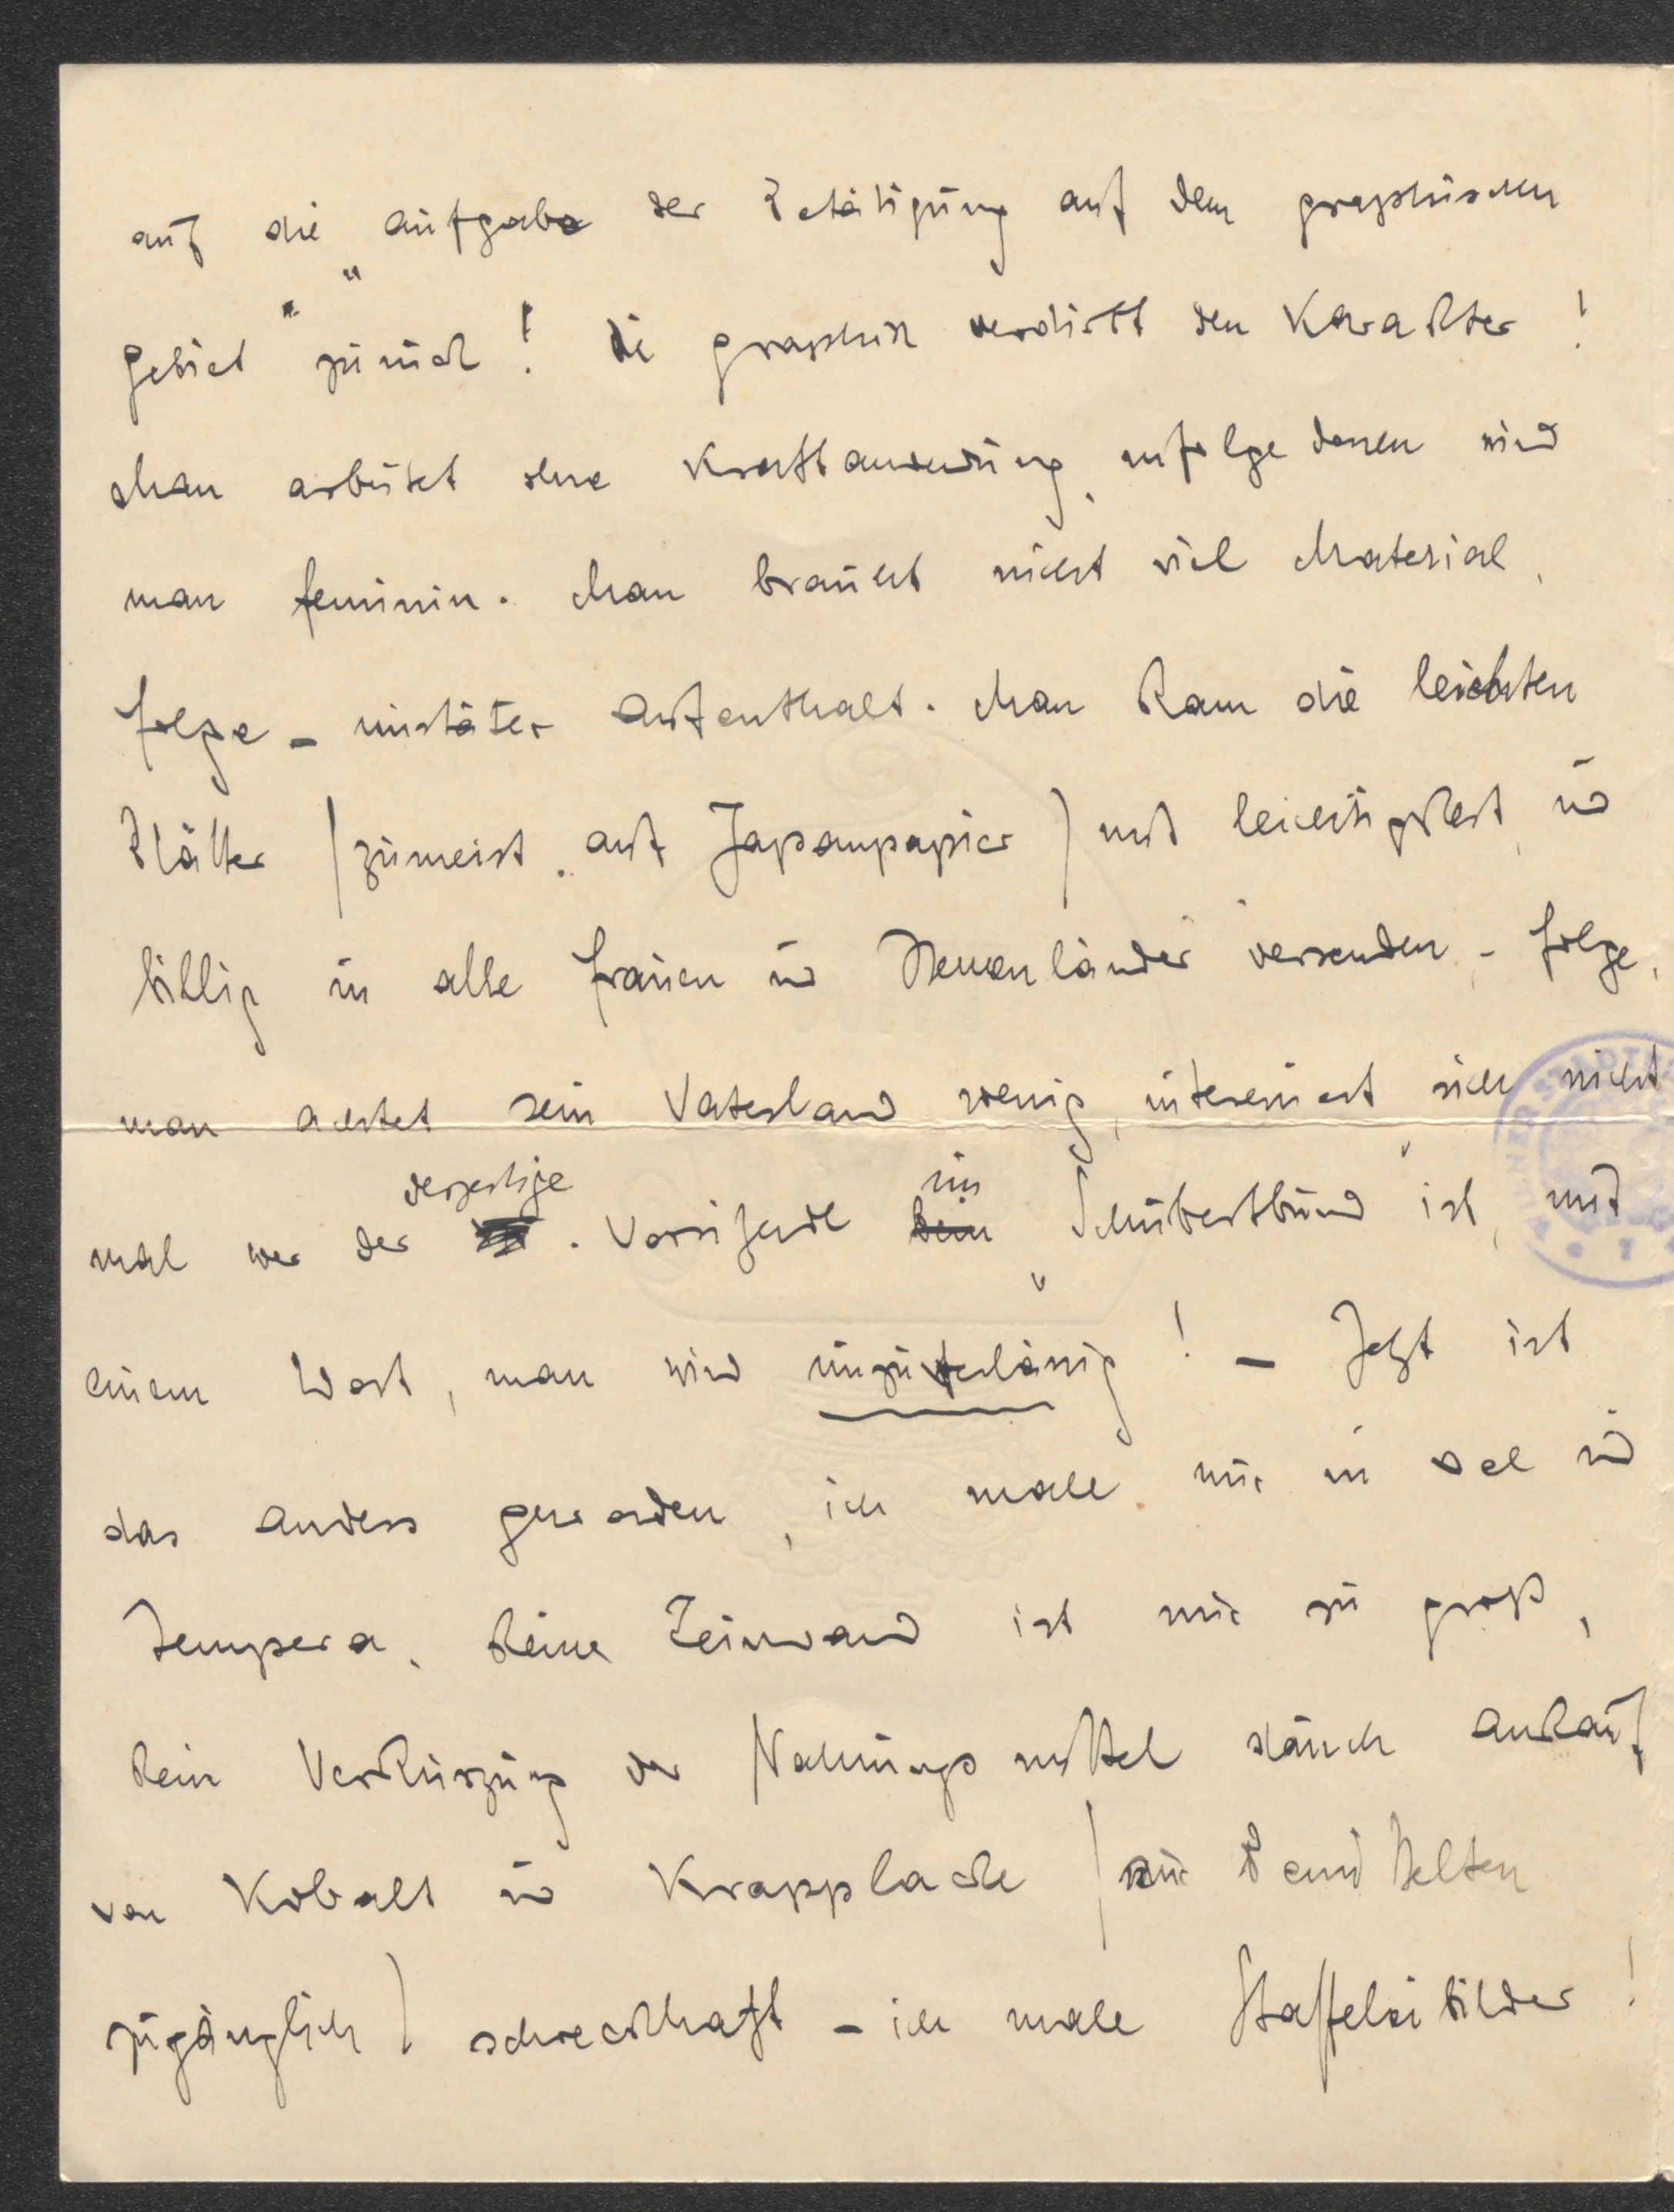 auf die Aufgabe der Betätigung auf dem graphischen
Gebiet zurück! Die Graphik verdirbt den Karakter!
Man arbeitet ohne Kraftanwendung, infolge dessen wird
man feminin. Man braucht nicht viel Material,
Folge – unstäter Aufenthalt. Man kann die leichten
Blätter (zumeist auf Japanpapier) mit Leichtigkeit, ud
billig in alle Frauen ud Herrenländer versenden – Folge,
man achtet sein Vaterland wenig, interessiert sich nicht
mal wer der derzeitige Vorsitzende im „Schubertbund" ist, mit
einem Wort, man wird unzuverlässig! – Jetzt ist
das anders geworden, ich male nur in Oel ud
Tempera, keine Leinwand ist mir zu groß,
kein Verkürzung der Nahrungsmittel durch Ankauf
von Kobalt ud Krapplacke (nur Bemittelten
zugänglich) schreckhaft – ich male Staffeleibilder!